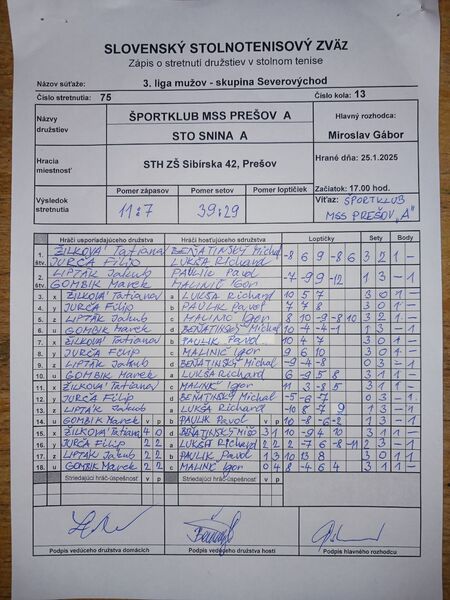 SLOVENSKÝ STOLNOTENISOVÝ ZVÄZ
Zápis o stretnutí družstiev v stolnom tenise
Názov súťaže: 3. liga mužov - skupina Severovýchod
Číslo stretnutia: 75 Číslo kola: 13
Názvy družstiev ŠPORTKLUB MSS PREŠOV A Hlavný rozhodca:
STO SNINA A Miroslav Gábor
Hracia miestnosť STH ZŠ Sibírska 42, Prešov Hrané dňa: 25.1.2025
Pomer zápasov Pomer setov Pomer loptičiek Začiatok: 17.00 hod.
Výsledok stretnutia 11:7 39:29 Víťaz: ŠPORTKLUB MSS PREŠOV "A"
Hráči usporiadajúceho družstva Hráči hosťujúceho družstva Loptičky Sety Body
1. štv. ŽILKOVÁ Tatiana BEŇATINSKÝ Michal -8 6 9 -8 6 3 2 1 -
JURČA FILIP LUKŠA Richard
2. štv. LIPTÁK Jakub PAULIK Pavol -7 -9 9 -12 1 3 - 1
GOMBIK Marek MALINIČ Igor
3. x ŽILKOVÁ Tatiana a LUKŠA Richard 10 5 7 3 0 1 -
4. y JURČA Filip b PAULIK Pavol 7 7 8 3 0 1 -
5. z LIPTÁK Jakub c MALINIČ Igor 8 10 -9 -8 10 3 2 1 -
6. u GOMBIK Marek d BEŇATINSKÝ Michal 10 -4 -4 -1 1 3 - 1
7. x ŽILKOVÁ Tatiana b PAULIK Pavol 10 4 7 3 0 1 -
8. y JURČA Filip c MALINIČ Igor 9 6 10 3 0 1 -
9. z LIPTÁK Jakub d BEŇATINSKÝ Michal -9 -4 -8 0 3 - 1
10. u GOMBIK Marek a LUKŠA Richard 6 -9 5 8 3 1 1 -
11. x ŽILKOVÁ Tatiana c MALINIČ Igor 11 3 -8 5 3 1 1 -
12. y JURČA Filip d BEŇATINSKÝ Michal -5 -6 -7 0 3 - 1
13. z LIPTÁK Jakub a LUKŠA Richard 1 3 - 1
14. u GOMBIK Marek v p b PAULIK Pavol v p 10 -8 -6 -2 1 3 - 1
15. x ŽILKOVÁ Tatiana 4 0 d BEŇATINSKÝ 10 -9 4 10 3 1 1 -
16. y JURČA Filip 2 2 a LUKŠA Richard 2 2 2 -7 6 -8 -11 2 3 - 1
17. z LIPTÁK Jakub 2 2 b PAULIK Pavol 1 3 10 13 8 3 0 1 -
18. u GOMBIK Marek 2 2 c MALINIČ Igor 0 4 8 -4 6 4 3 1 1 -
Striedajúci hráč-úspešnosť v p Striedajúci hráč-úspešnosť v p
Podpis vedúceho družstva domácich Podpis vedúceho družstva hostí Podpis hlavného rozhodcu